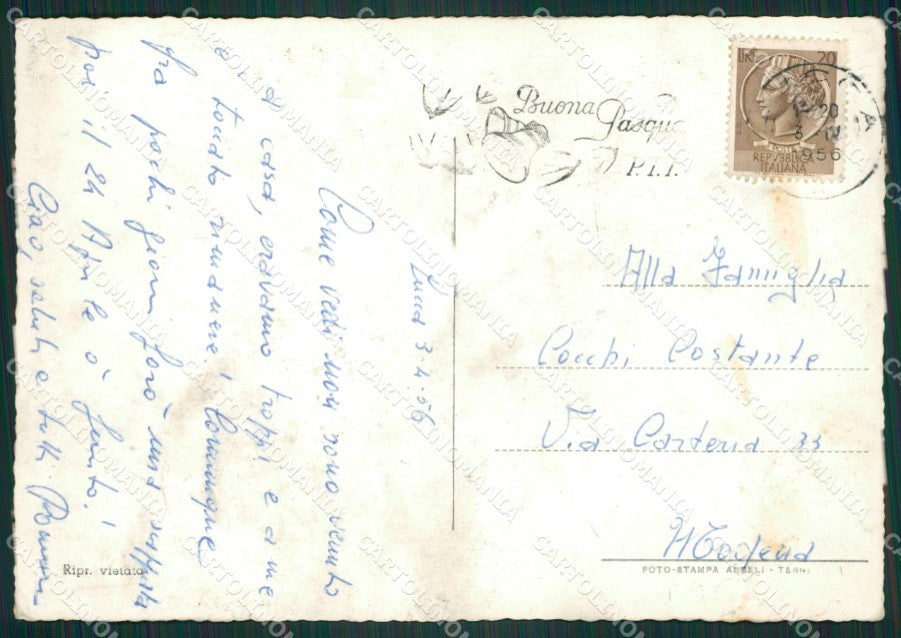 Lucca 3.4.56
Come vedi non sono venuto
a casa, eravamo troppi e a me
è toccato rimanere! Comunque
fra pochi giorni farò una scappata
poi il 24 Aprile è finito!
Ciao, saluti a tutti
Buona
Pasqua
P.T.T.
LIRE 20
REPUBBLICA
ITALIANA
20
6 IV
1956
Alla Famiglia
Cocchi Costante
Via Carteria 33
Modena
Ripr. vietata
FOTO-STAMPA ANGELI - TERNI
CARTOLINOMANIA